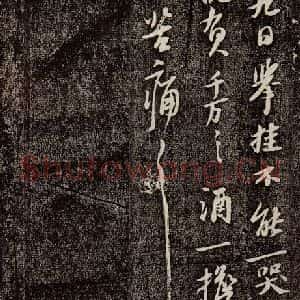 九日举挂不能一哭
贺千万之酒一
苦痛
Shufawang.CN